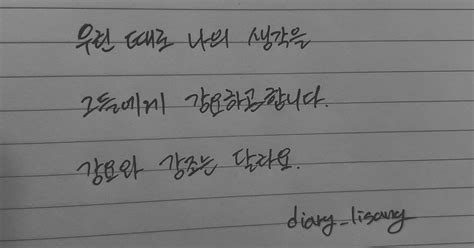 우린 때로 나의 생각을
그들에게 강요하곤합니다.
강요와 강조는 달라요.
diary_lisany